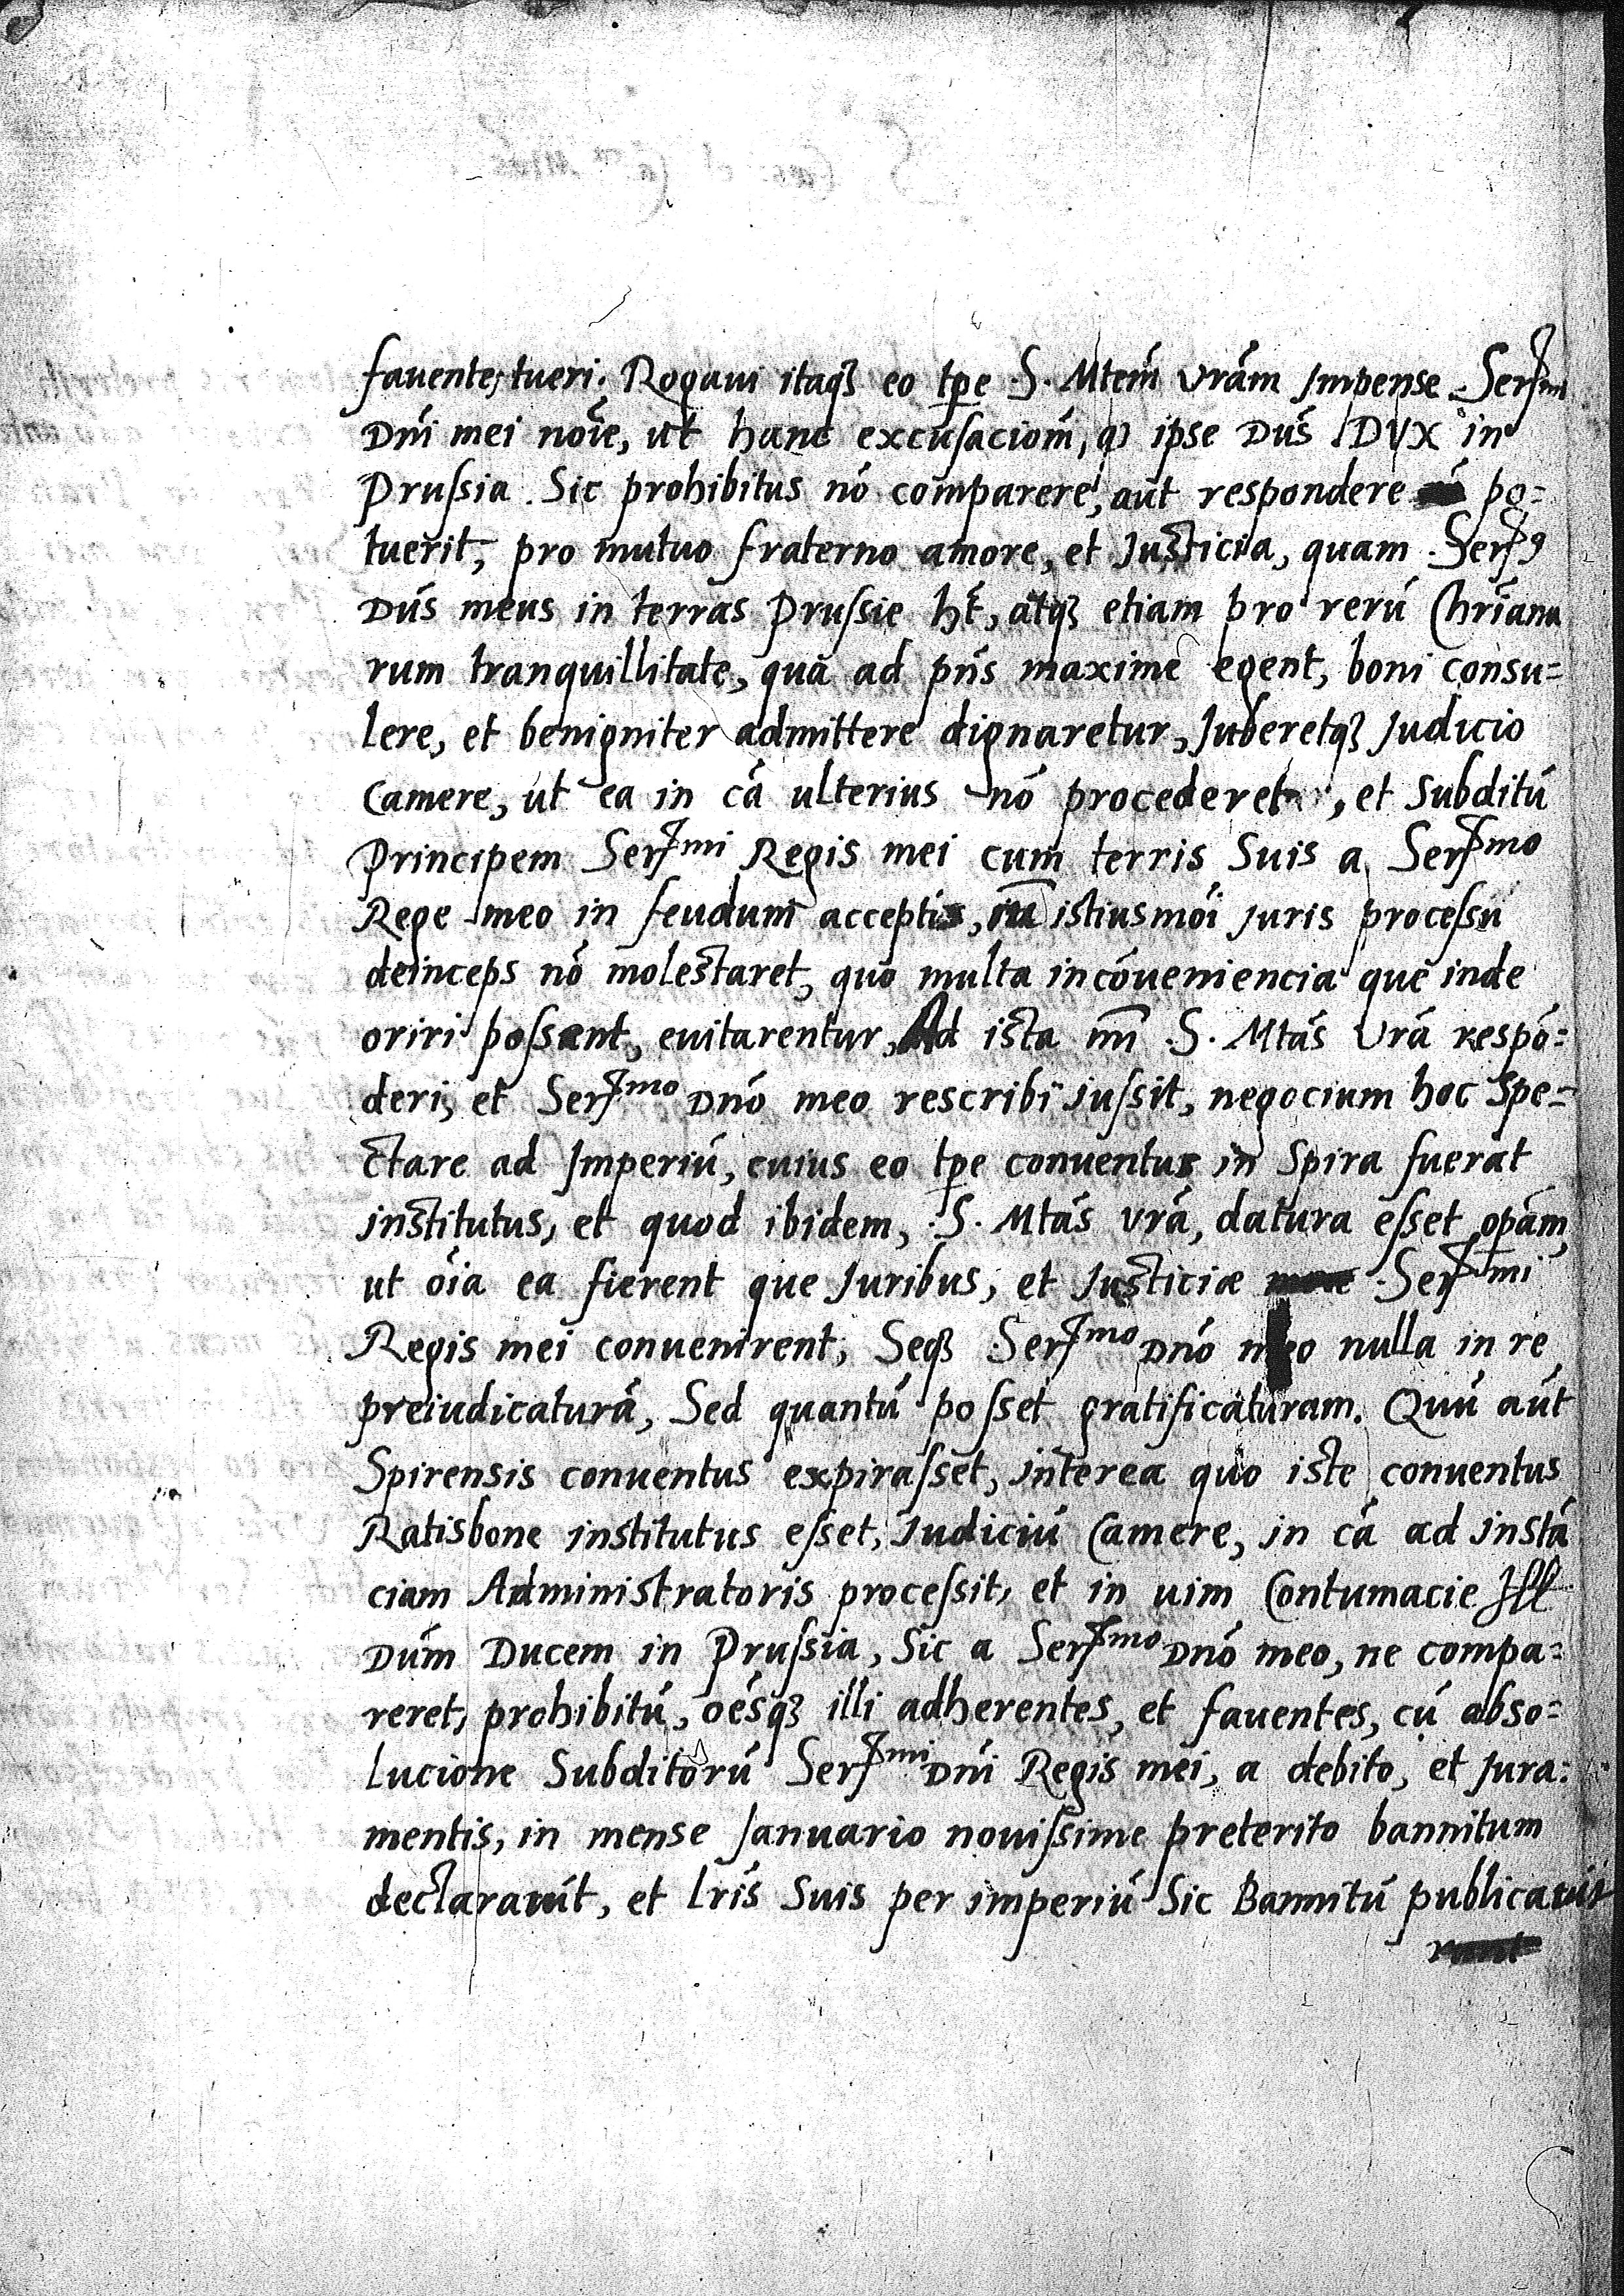 fauente, tueri. Rogaui itaqꝫ eo tpe .S. Mtem̄ vrām Jmpense .Serᵐⁱ
Dnī mei noīe, ut hanc excusaciom̄, qꝫ ipse Dūs DVX in
Prussia. Sic prohibitus nō comparere, aūt respondere po=
tuerit, pro mutuo fraterno amore, et Justicia, quam .Ser⁹
Dūs meus in terras Prussie ht̄, atqꝫ etiam pro rerū Chrīana
rum tranquillitate, quā ad pn̄s maxime egent, boni consu=
lere, et benigniter admittere dignaretur, Juberetqꝫ Judicio
Camere, ut ea in cā ulterius nō procederet, et Subditū
Principem Serᵐⁱ Regis mei cum terris Suis a Serᵐᵒ
Rege meo in feudum acceptis, istiusmōi Juris processu
deinceps nō molestaret, quo multa incōueniencia que inde
oriri possent, euitarentur, Ad ista mī .S. Mtās Vrā respō=
deri, et Serᵐᵒ Dnō meo rescribi iussit, negocium hoc Spe=
ctare ad Jmperiū, cuius eo tpe conuentus in Spira fuerat
institutus, et quod ibidem, .S. Mtās vrā, datura esset opām,
ut oīa ea fierent que Juribus, et Justiciæ .Serᵐⁱ
Regis mei conuenirent, Seqꝫ .Serᵐᵒ Dnō meo nulla in re
preiudicaturā, Sed quantū posset gratificaturam. Quū aūt
Spirensis conuentus expirasset, interea quo iste conuentus
Ratisbone institutus esset, Judiciū Camere, in cā ad instā
ciam Administratoris processit, et in uim Contumacie Ill
Dūm Ducem in Prussia, Sic a Serᵐᵒ Dnō meo, ne compa=
reret, prohibitū, oēsqꝫ illi adherentes, et fauentes, cū abso=
lucione Subditorū Serᵐⁱ Dnī Regis mei, a debito, et Jura=
mentis, in mense Januario nouissime preterito bannitum
declarauīt, et Lrīs Suis per imperiū Sic Bannitū publicauit